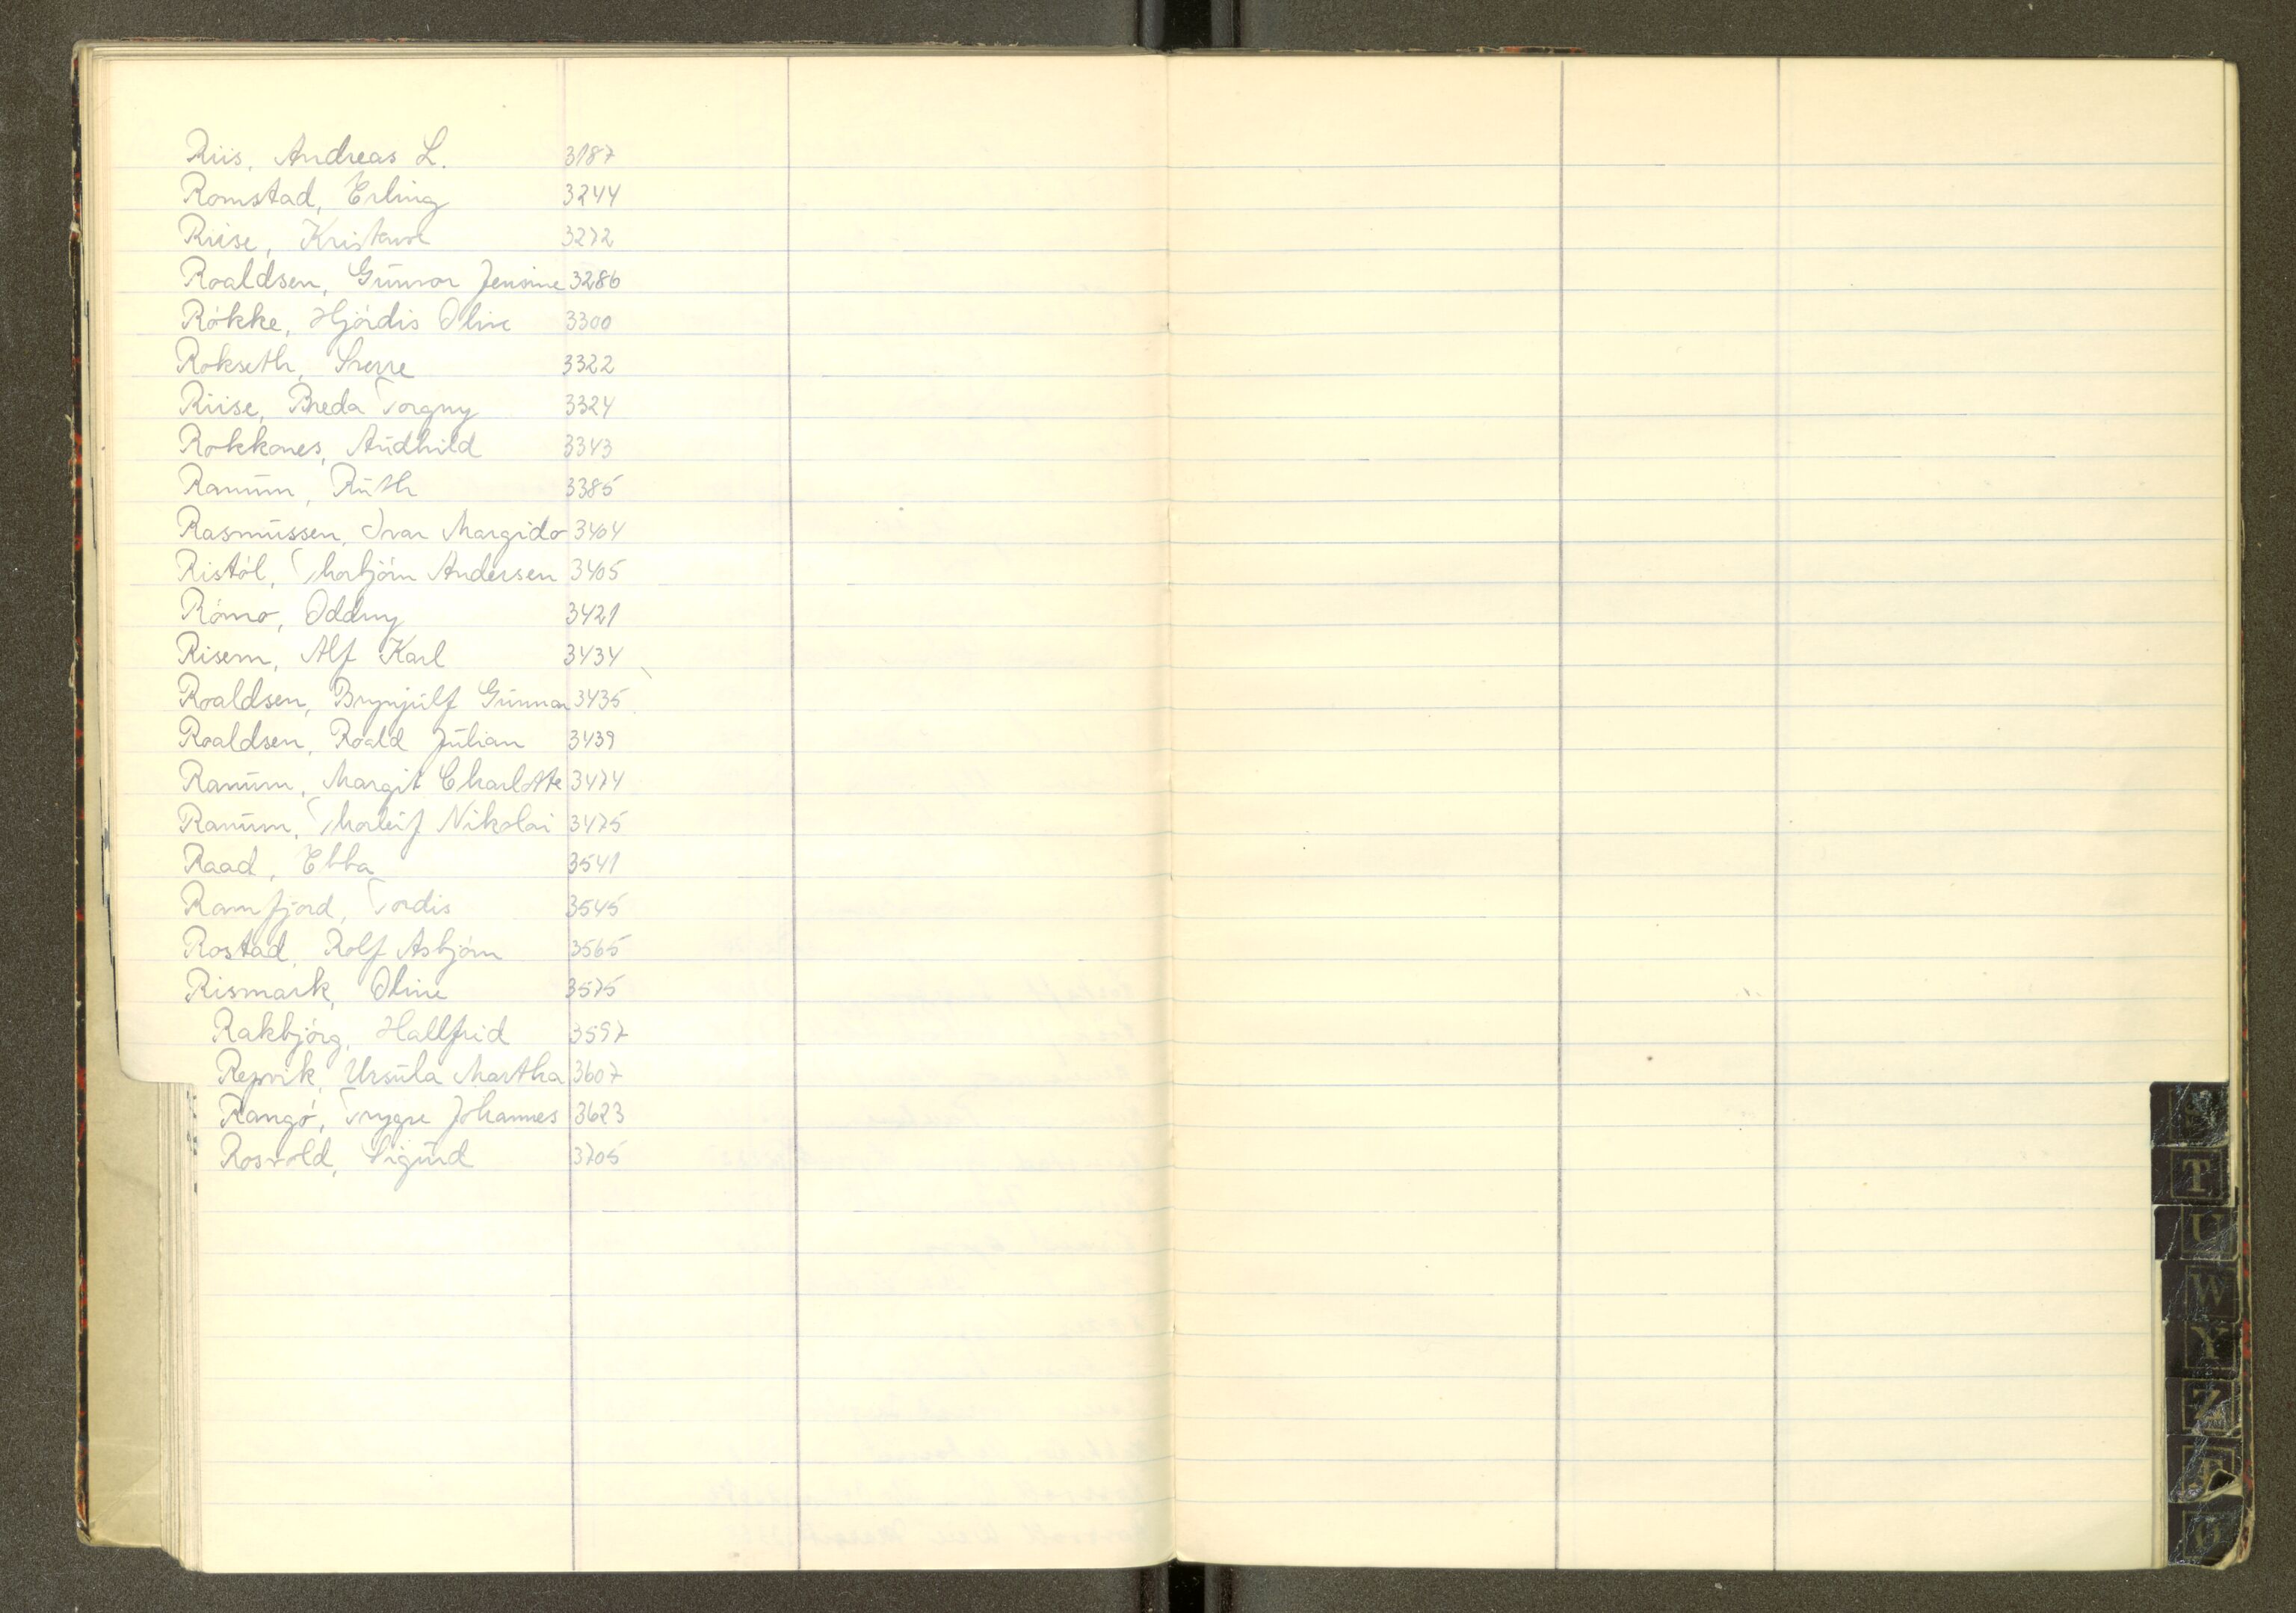 Riis, Andreas L. 3187
Romstad, Erling 3244
Riise, Kristana 3272
Roaldsen, Gunvor Jensine 3286
Rökke, Hjördis Oline 3300
Rokseth, Sverre 3322
Riise, Breda Torgny 3324
Rokkones, Audhild 3343
Ranum, Ruth 3385
Rasmussen, Ivar Margido 3404
Ristöl, Thorbjörn Andersen 3405
Römo, Oddny 3421
Risem, Alf Karl 3434
Roaldsen, Brynjulf Gunnar 3435
Roaldsen, Roald Julian 3439
Ranum, Margit Charlotte 3474
Ranum, Thorleif Nikolai 3475
Raad, Ebba 3541
Ramfjord, Tordis 3545
Rostad, Rolf Asbjörn 3565
Rismark, Oline 3575
Rakbjörg, Hallfrid 3597
Repvik, Ursula Martha 3607
Rangö, Trygve Johannes 3623
Rosvold, Sigurd 3705
S
T
U
W
Y
Z
Æ
Ö